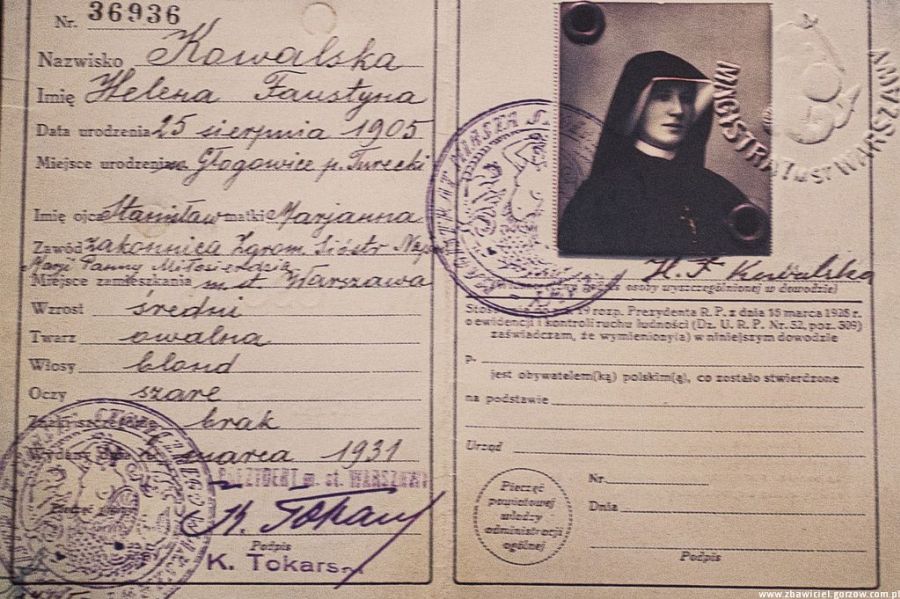 Nr. 36936
Nazwisko Kowalska
Imię Helena Faustyna
Data urodzenia 25 sierpnia 1905
Miejsce urodzenia Głogowice p. Turecki
Imię ojca Stanisław matki Marjanna
Zawód zakonnica Zgrom. Sióstr Najśw.
Marji Panny Miłosierdzia
Miejsce zamieszkania m. st. Warszawa
Wzrost średni
Twarz owalna
Włosy blond
Oczy szare
Znaki szczególne brak
Wydany dnia marca 1931
PREZYDENT m. st. WARSZAWY
Podpis
K. Tokars
MAGISTRAT m. st. WARSZAWY
H. F. Kowalska
osoby wyszczególnionej w dowodzie)
rozp. Prezydenta R. P. z dnia 16 marca 1928 r.
o ewidencji i kontroli ruchu ludności (Dz. U. R. P. Nr. 32, poz. 309)
zaświadczam, że wymieniony(a) w niniejszym dowodzie
p.
jest obywatelem(ką) polskim(ą), co zostało stwierdzone
na podstawie
Urząd
Pieczęć
powiatowej
władzy
administracji
ogólnej
Nr.
Dnia
Podpis
www.zbawiciel.gorzow.com.pl